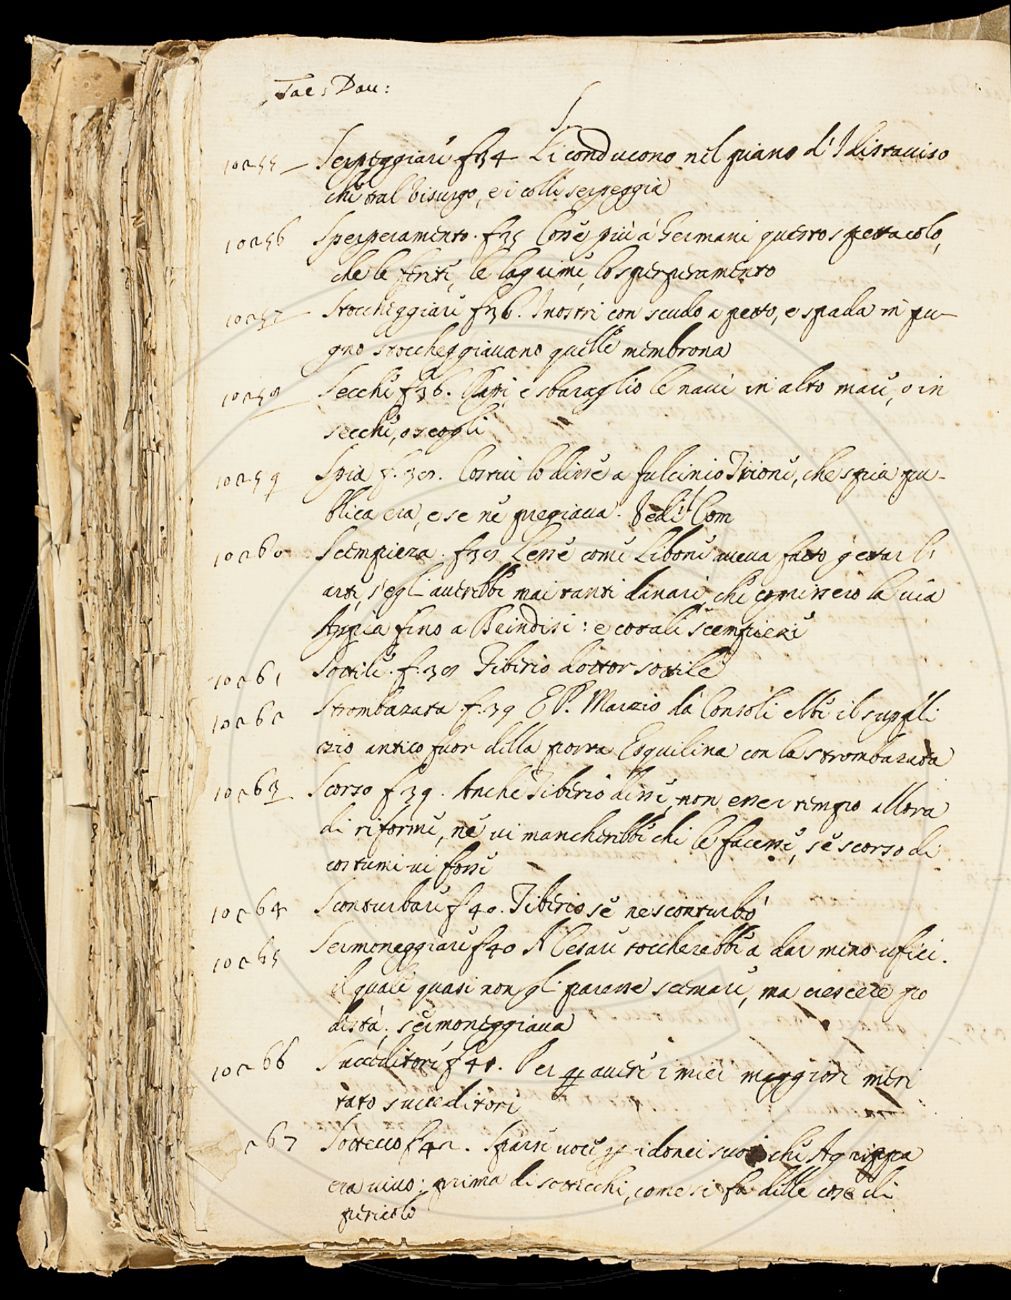 Tac: Dau:
S
10255 Serpeggiare f 34 Li conducono nel piano d' Idistauiso
che tral Visurgo, e i colli serpeggia
10256 Sperperamento. f 35 Con più a Germani questo spettacolo,
che le ferite, le lagrime, lo sperperamento
10257 Stoccheggiare f 36. I nostri con scudo a petto, e spada in pu-
gno stoccheggiauano quelle membrona
10258 Secche f 36. e sbaraglio le naui in alto mare, o in
secche, o scogli
10259 Spia f. Costui lo disse a Fulcinio Trione, che spia pu-
blica era, e se ne pregiaua. Vedi Com
10260 Scempiezza. f Lesse come Libone aueua fatto gettar l'
arti, s'egli auerebbe mai tanti danari, che coprissero la uia
Appia fino a Brindisi: e cotali scempiezze
10261 Sottile. f. Tiberio dottor sottile
10262 Strombazata f. 39 E P. Marzio da Consoli ebbe il suppli
zio antico fuor della porta Esquilina con la strombazata
10263 Scorso f 39. Anche Tiberio disse, non esser tempo allora
di riforme, ne ui mancherebbe chi le facesse, se scorso di
costumi ui fosse
10264 Sconturbare f 40. Tiberio se ne sconturbò
10265 Sermoneggiare f 40 A Cesare toccherebbe a dar meno ufici.
il quale quasi non gli parasse scemare, ma crescere po
destà. sermoneggiaua
10266 Succeditore f 41. Per auere i miei maggiori meri
tato succeditori
267 Sottecco f 42. Sparse uoce idonei suoi che Agrippa
era uiuo: prima di sottecchi, come si fa delle cose di
pericolo